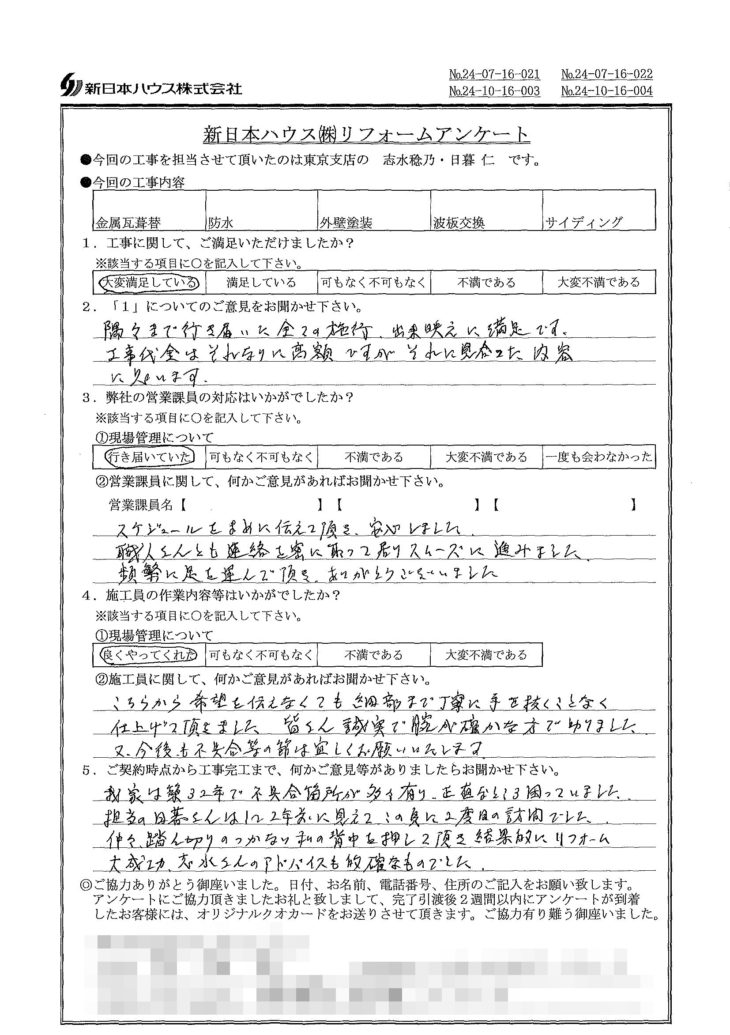 新日本ハウス株式会社
№24-07-16-021 №24-07-16-022
№24-10-16-003 №24-10-16-004
新日本ハウス㈱リフォームアンケート
●今回の工事を担当させて頂いたのは東京支店の 志水稔乃・日暮 仁 です。
●今回の工事内容
金属瓦葺替 防水 外壁塗装 波板交換 サイディング
1．工事に関して、ご満足いただけましたか？
※該当する項目に○を記入して下さい。
大変満足している 満足している 可もなく不可もなく 不満である 大変不満である
2．「1」についてのご意見をお聞かせ下さい。
隅々まで行き届いた全ての施行、出来映えに満足です。
工事代金はそれなりに高額ですがそれに見合った内容
に思います。
3．弊社の営業課員の対応はいかがでしたか？
※該当する項目に○を記入して下さい。
①現場管理について
行き届いていた 可もなく不可もなく 不満である 大変不満である 一度も会わなかった
②営業課員に関して、何かご意見があればお聞かせ下さい。
営業課員名【 】【 】【 】
スケジュールをまめに伝えて頂き、安心しました。
職人さんとも連絡を密に取って居りスムーズに進みました。
頻繁に足を運んで頂き、ありがとうございました
4．施工員の作業内容等はいかがでしたか？
※該当する項目に○を記入して下さい。
①現場管理について
良くやってくれた 可もなく不可もなく 不満である 大変不満である
②施工員に関して、何かご意見があればお聞かせ下さい。
こちらから希望を伝えなくても細部まで丁寧に手を抜くことなく
仕上げて頂きました 皆さん誠実で腕が確かな方で切りました。
又、今後も不具合等の節は宜しくお願いいたします
5．ご契約時点から工事完工まで、何かご意見等がありましたらお聞かせ下さい。
我家は築32年で不具合箇所が多く有り、正直なところ困っていました。
担当の日暮さんは1、2年前に見えてこの夏に2度目の訪問でした。
仲々、踏ん切りのつかない私の背中を押して頂き結果的にリフォーム
大成功、志水さんのアドバイスも的確なものでした。
◎ご協力ありがとう御座いました。日付、お名前、電話番号、住所のご記入をお願い致します。
アンケートにご協力頂きましたお礼と致しまして、完了引渡後2週間以内にアンケートが到着
したお客様には、オリジナルクオカードをお送りさせて頂きます。ご協力有り難う御座いました。